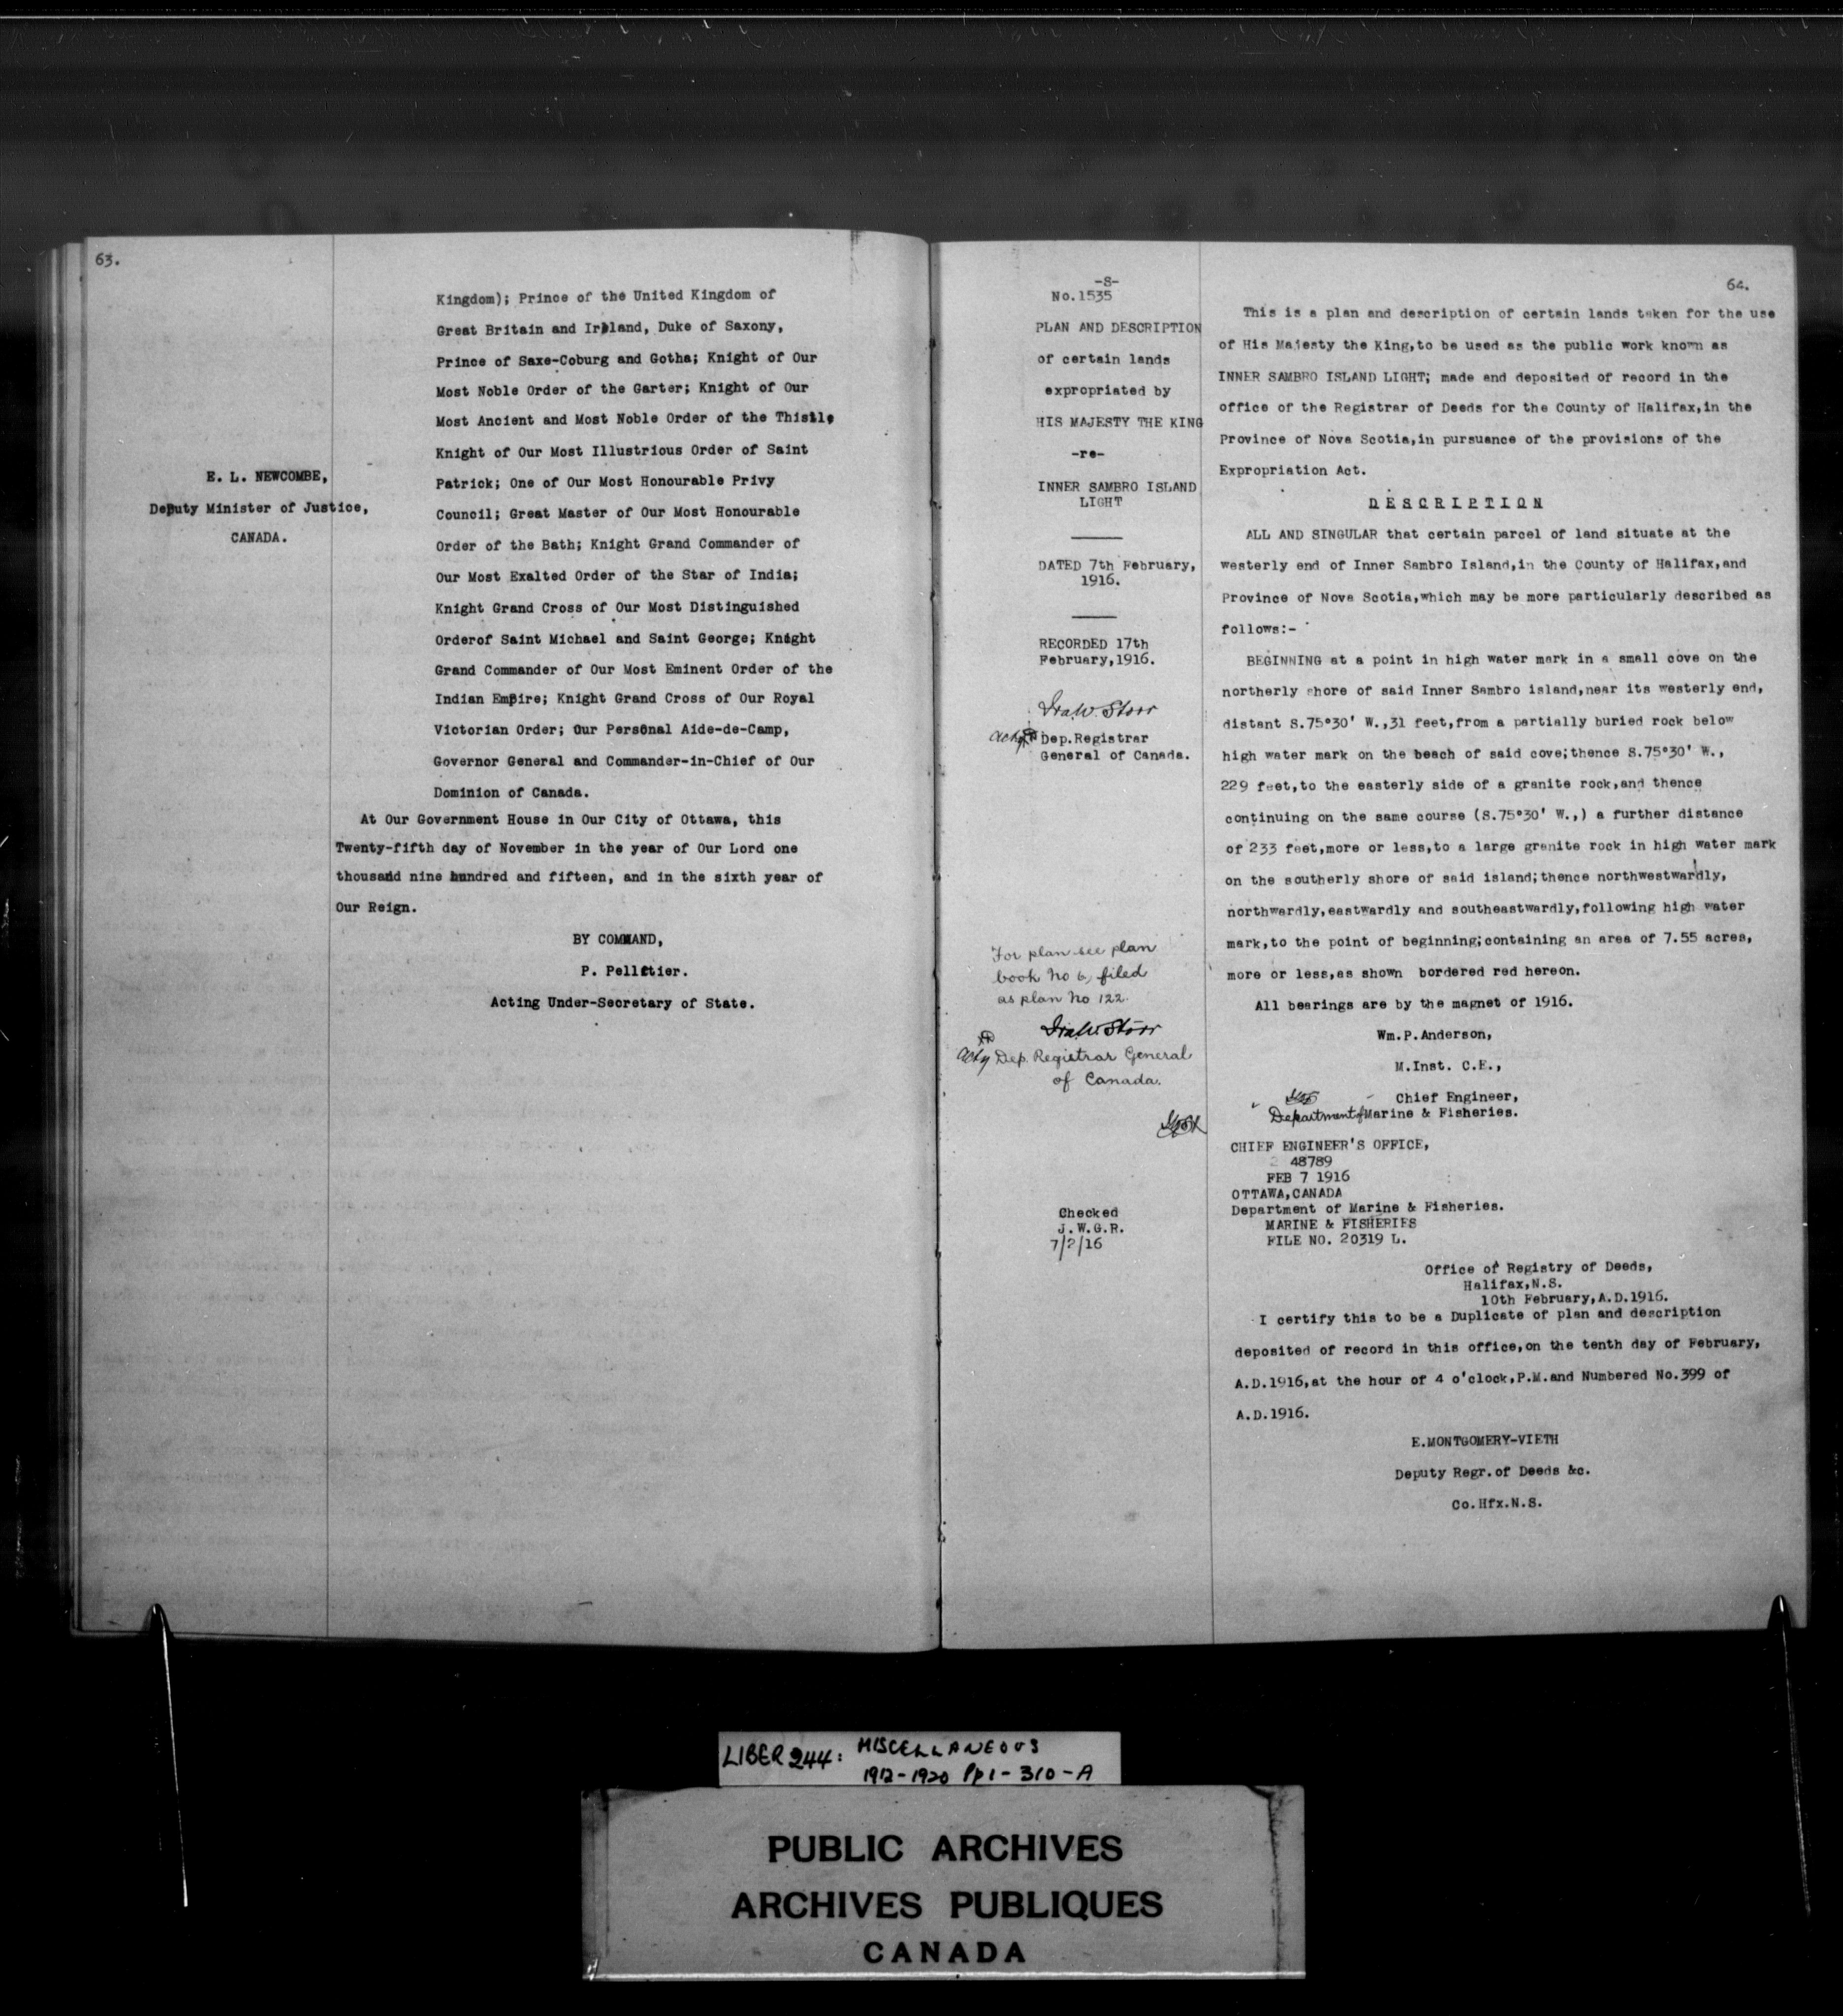 63.
Kingdom); Prince of the United Kingdom of
Great Britain and Ireland, Duke of Saxony,
Prince of Saxe-Coburg and Gotha; Knight of Our
Most Noble Order of the Garter; Knight of Our
Most Ancient and Most Noble Order of the Thistle
Knight of Our Most Illustrious Order of Saint
Patrick; One of Our Most Honourable Privy
Council; Great Master of Our Most Honourable
Order of the Bath; Knight Grand Commander of
Our Most Exalted Order of the Star of India;
Knight Grand Cross of Our Most Distinguished
Orderof Saint Michael and Saint George; Knight
Grand Commander of Our Most Eminent Order of the
Indian Empire; Knight Grand Cross of Our Royal
Victorian Order; Our Personal Aide-de-Camp,
Governor General and Commander-in-Chief of Our
Dominion of Canada.
E. L. NEWCOMBE,
Deputy Minister of Justice,
CANADA.
At Our Government House in Our City of Ottawa, this
Twenty-fifth day of November in the year of Our Lord one
thousand nine hundred and fifteen, and in the sixth year of
Our Reign.
BY COMMAND,
P. Pelletier.
Acting Under-Secretary of State.
-8-
No.1535
PLAN AND DESCRIPTION
of certain lands
expropriated by
HIS MAJESTY THE KING
-re-
INNER SAMBRO ISLAND
LIGHT
DATED 7th February,
1916.
RECORDED 17th
February,1916.
Ira W. Storr
Actg Dep.Registrar
General of Canada.
For plan see plan
book No 6, filed
as plan No 122.
Ira W. Storr
Actg Dep. Registrar General
of Canada.
Checked
J.W.G.R.
7/2/16
64.
This is a plan and description of certain lands taken for the use
of His Majesty the King,to be used as the public work known as
INNER SAMBRO ISLAND LIGHT; made and deposited of record in the
office of the Registrar of Deeds for the County of Halifax,in the
Province of Nova Scotia,in pursuance of the provisions of the
Expropriation Act.
DESCRIPTION
ALL AND SINGULAR that certain parcel of land situate at the
westerly end of Inner Sambro Island,in the County of Halifax,and
Province of Nova Scotia,which may be more particularly described as
follows:-
BEGINNING at a point in high water mark in a small cove on the
northerly shore of said Inner Sambro island,near its westerly end,
distant S.75°30' W.,31 feet,from a partially buried rock below
high water mark on the beach of said cove;thence S.75°30' W.,
229 feet,to the easterly side of a granite rock,and thence
continuing on the same course (S.75°30' W.,) a further distance
of 233 feet,more or less,to a large granite rock in high water mark
on the southerly shore of said island;thence northwestwardly,
northwardly,eastwardly and southeastwardly,following high water
mark,to the point of beginning;containing an area of 7.55 acres,
more or less,as shown bordered red hereon.
All bearings are by the magnet of 1916.
Wm.P.Anderson,
M.Inst. C.E.,
Chief Engineer,
Department of Marine & Fisheries.
CHIEF ENGINEER'S OFFICE,
48789
FEB 7 1916
OTTAWA,CANADA
Department of Marine & Fisheries.
MARINE & FISHERIES
FILE NO. 20319 L.
Office of Registry of Deeds,
Halifax,N.S.
10th February,A.D.1916.
I certify this to be a Duplicate of plan and description
deposited of record in this office,on the tenth day of February,
A.D.1916,at the hour of 4 o'clock,P.M.and Numbered No.399 of
A.D.1916.
E.MONTGOMERY-VIETH
Deputy Regr.of Deeds &c.
Co.Hfx.N.S.
LIBER 244: MISCELLANEOUS
1912-1920 Pp 1-310-A
PUBLIC ARCHIVES
ARCHIVES PUBLIQUES
CANADA